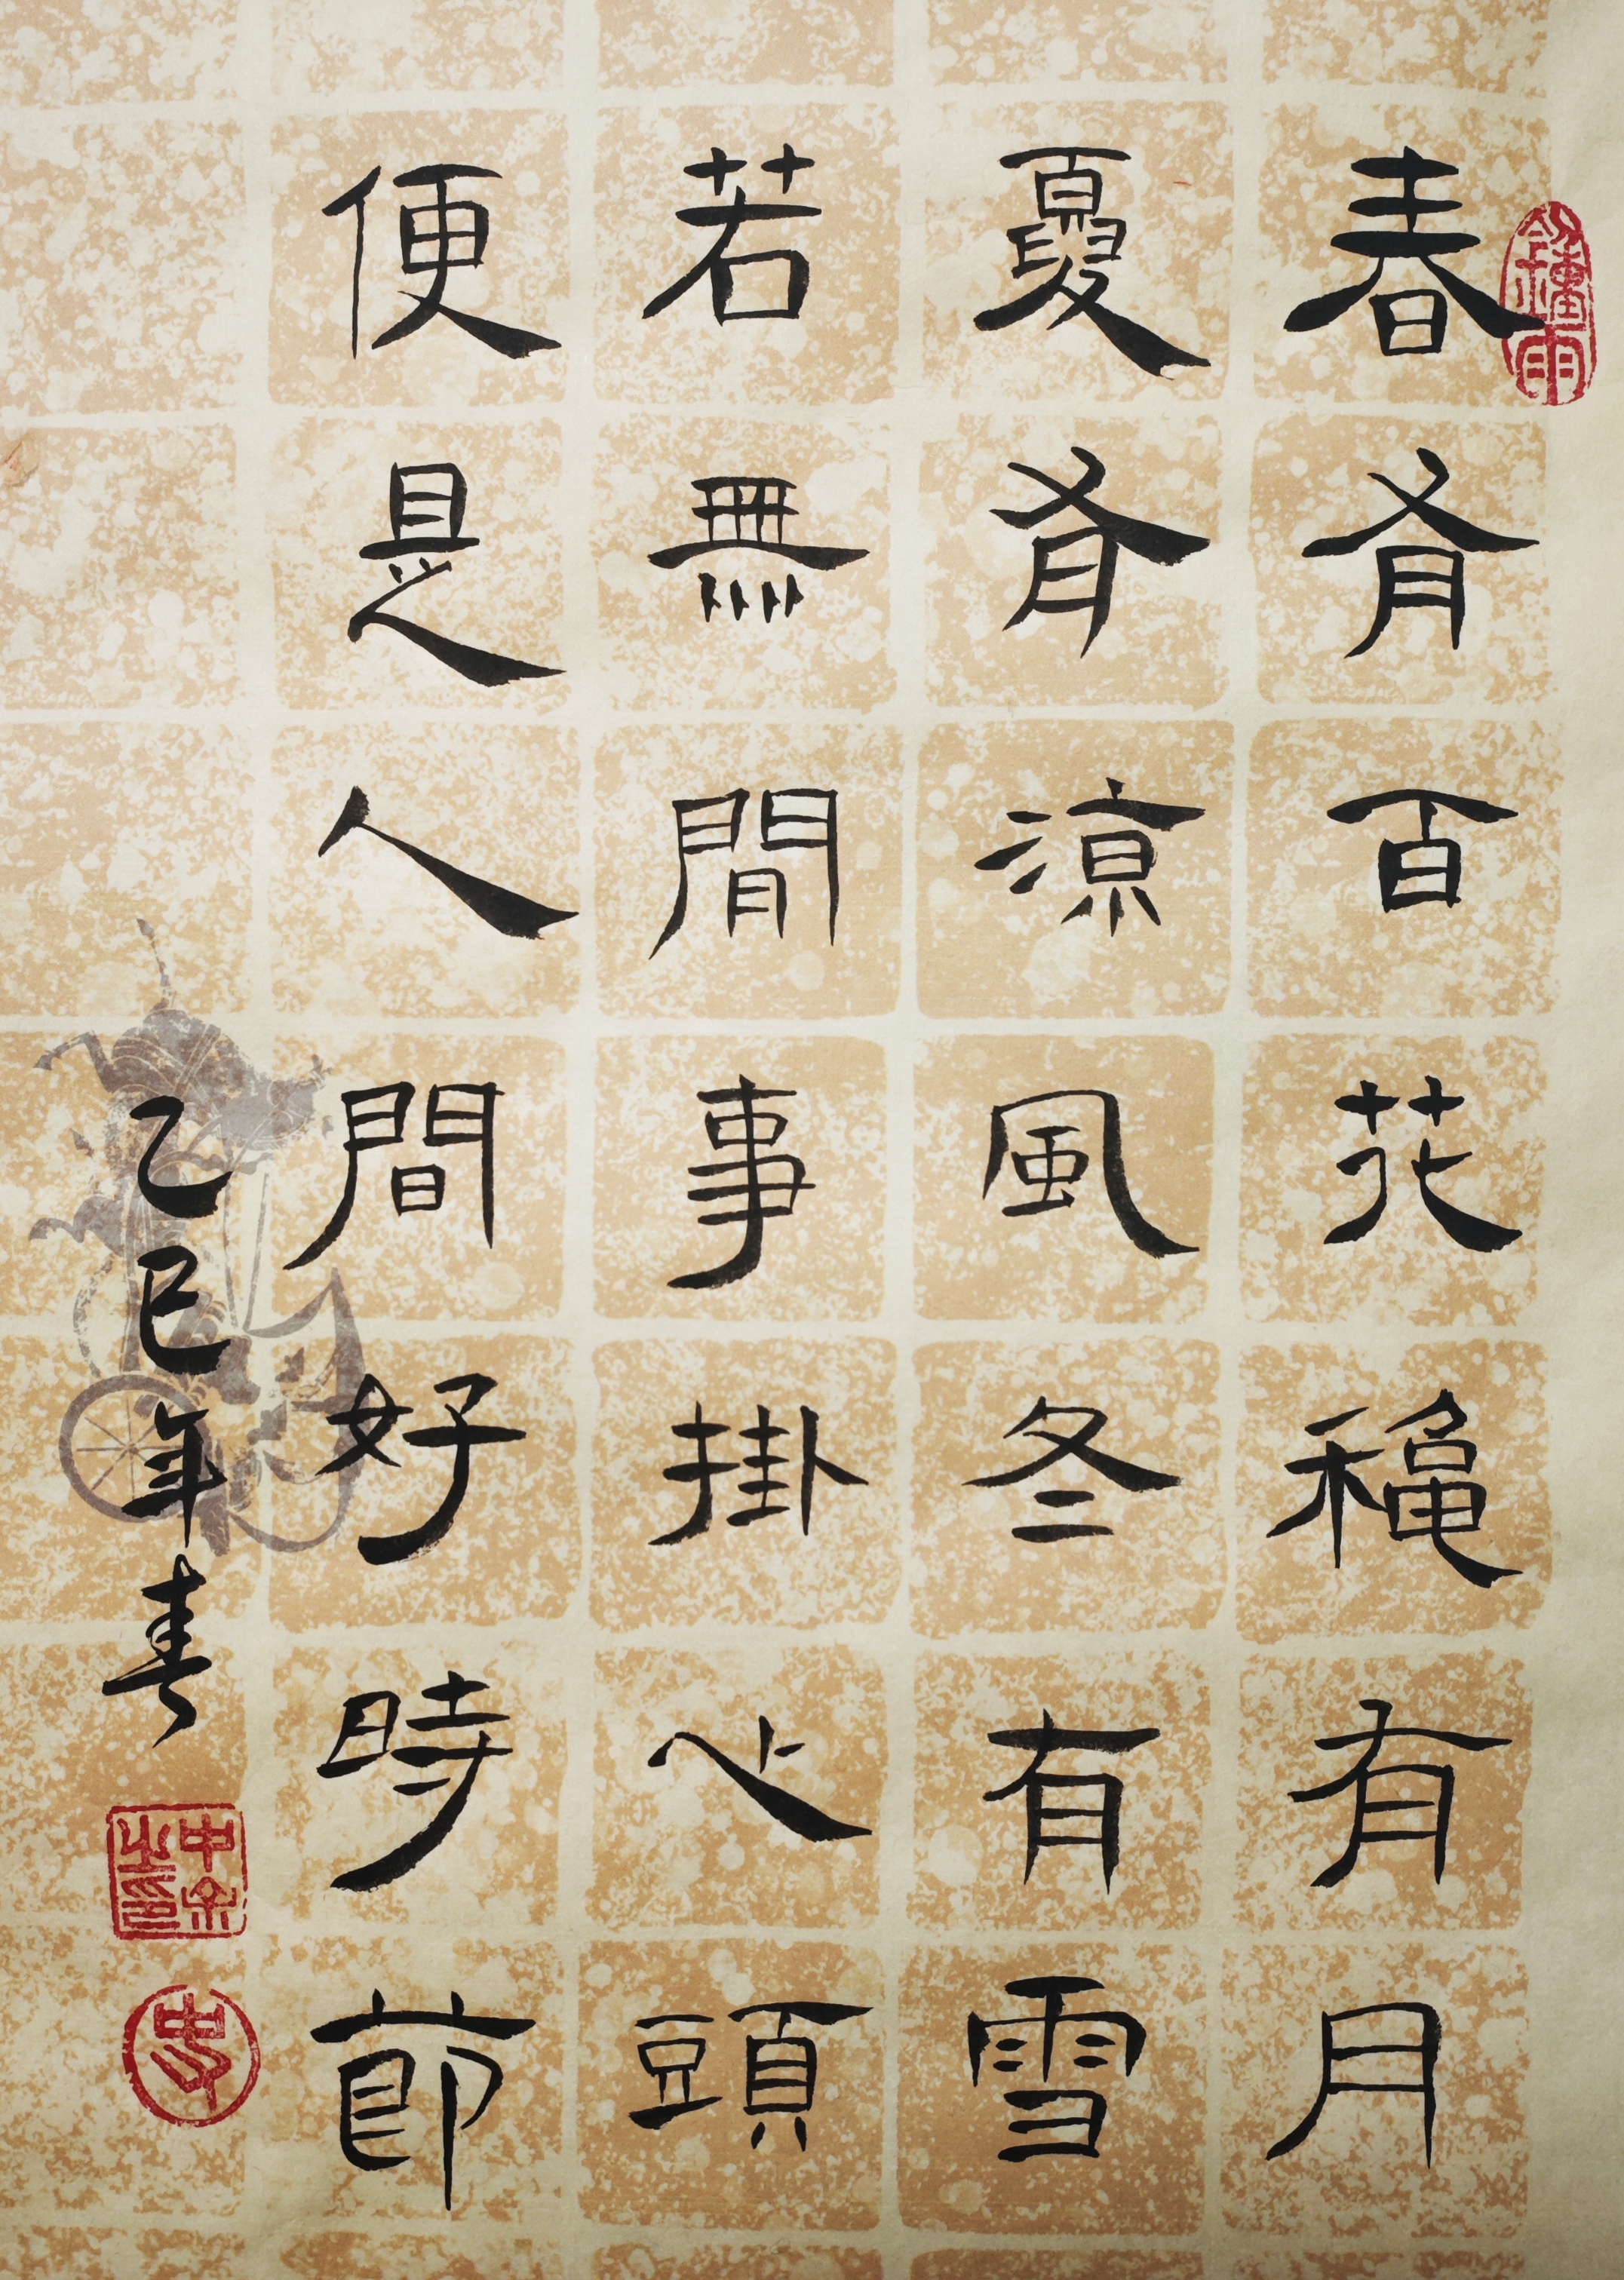 春有百花穐有月
夏有涼風冬有雪
若無閒事掛心頭
便是人間好時節
乙巳年春